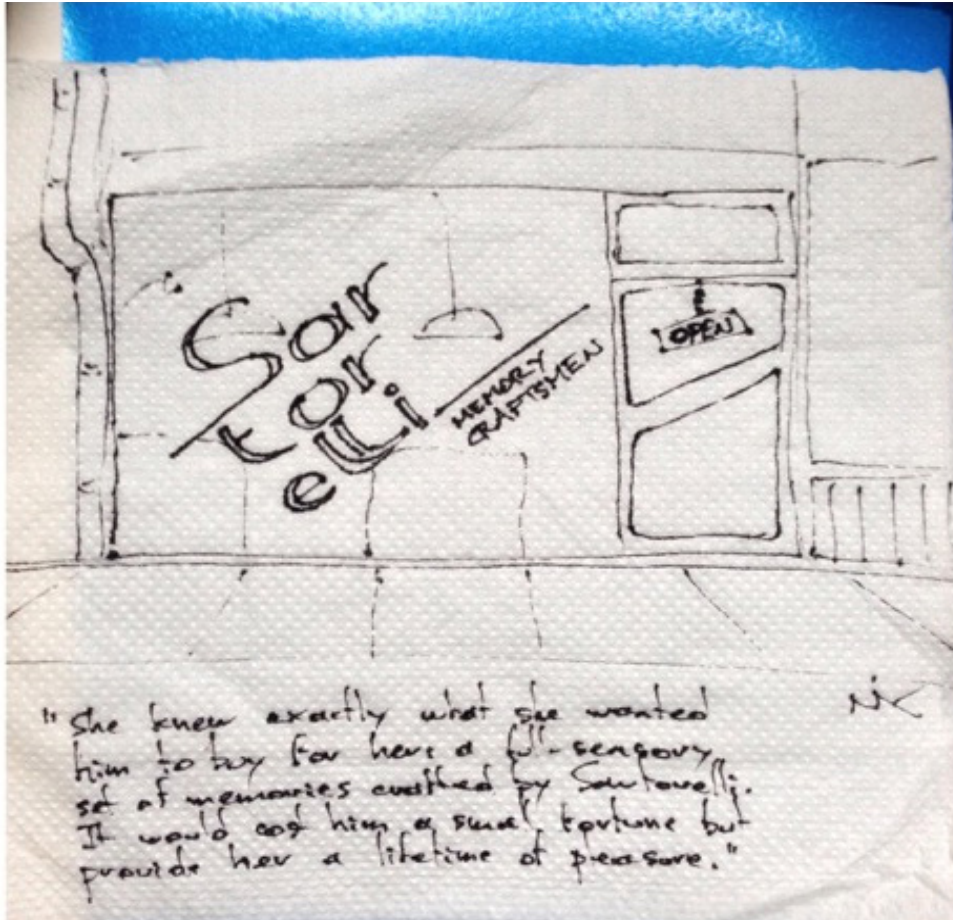 Sar
tor
elli
MEMORY
CRAFTSMEN
OPEN
"She knew exactly what she wanted
him to buy for her: a full-sensory
set of memories crafted by Sartorelli.
It would cost him a small fortune but
provide her a lifetime of pleasure."
NK